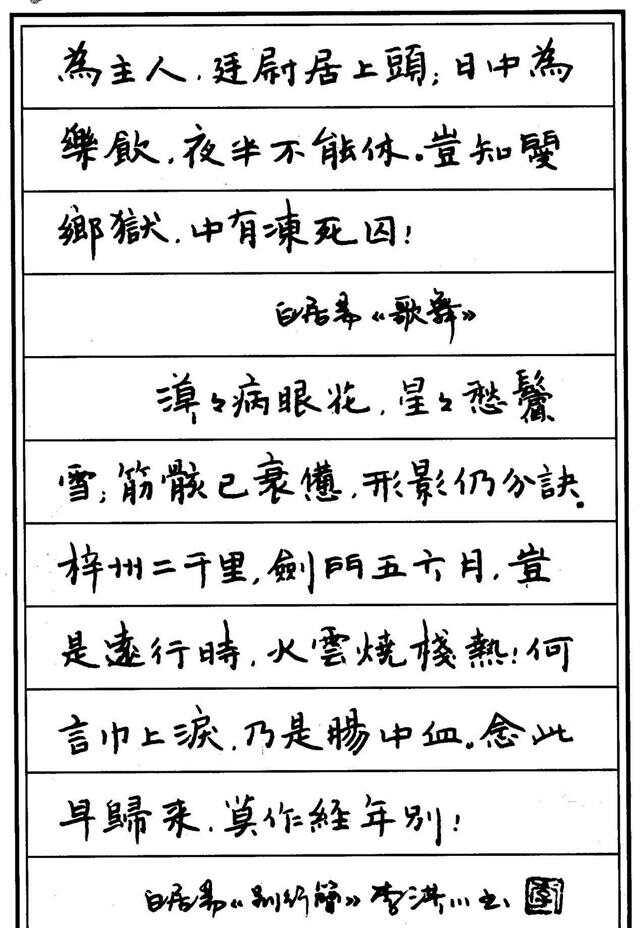 為主人,廷尉居上頭;日中為
樂飲,夜半不能休。豈知閿
鄉獄,中有凍死囚!
白居易《歌舞》
漠々病眼花,星々愁鬢
雪;筋骸已衰憊,形影仍分訣。
梓州二千里,劍門五六月,豈
是遠行時,火雲燒棧熱!何
言巾上淚,乃是腸中血。念此
早歸来,莫作經年别!
白居易《别行簡》李洪川书